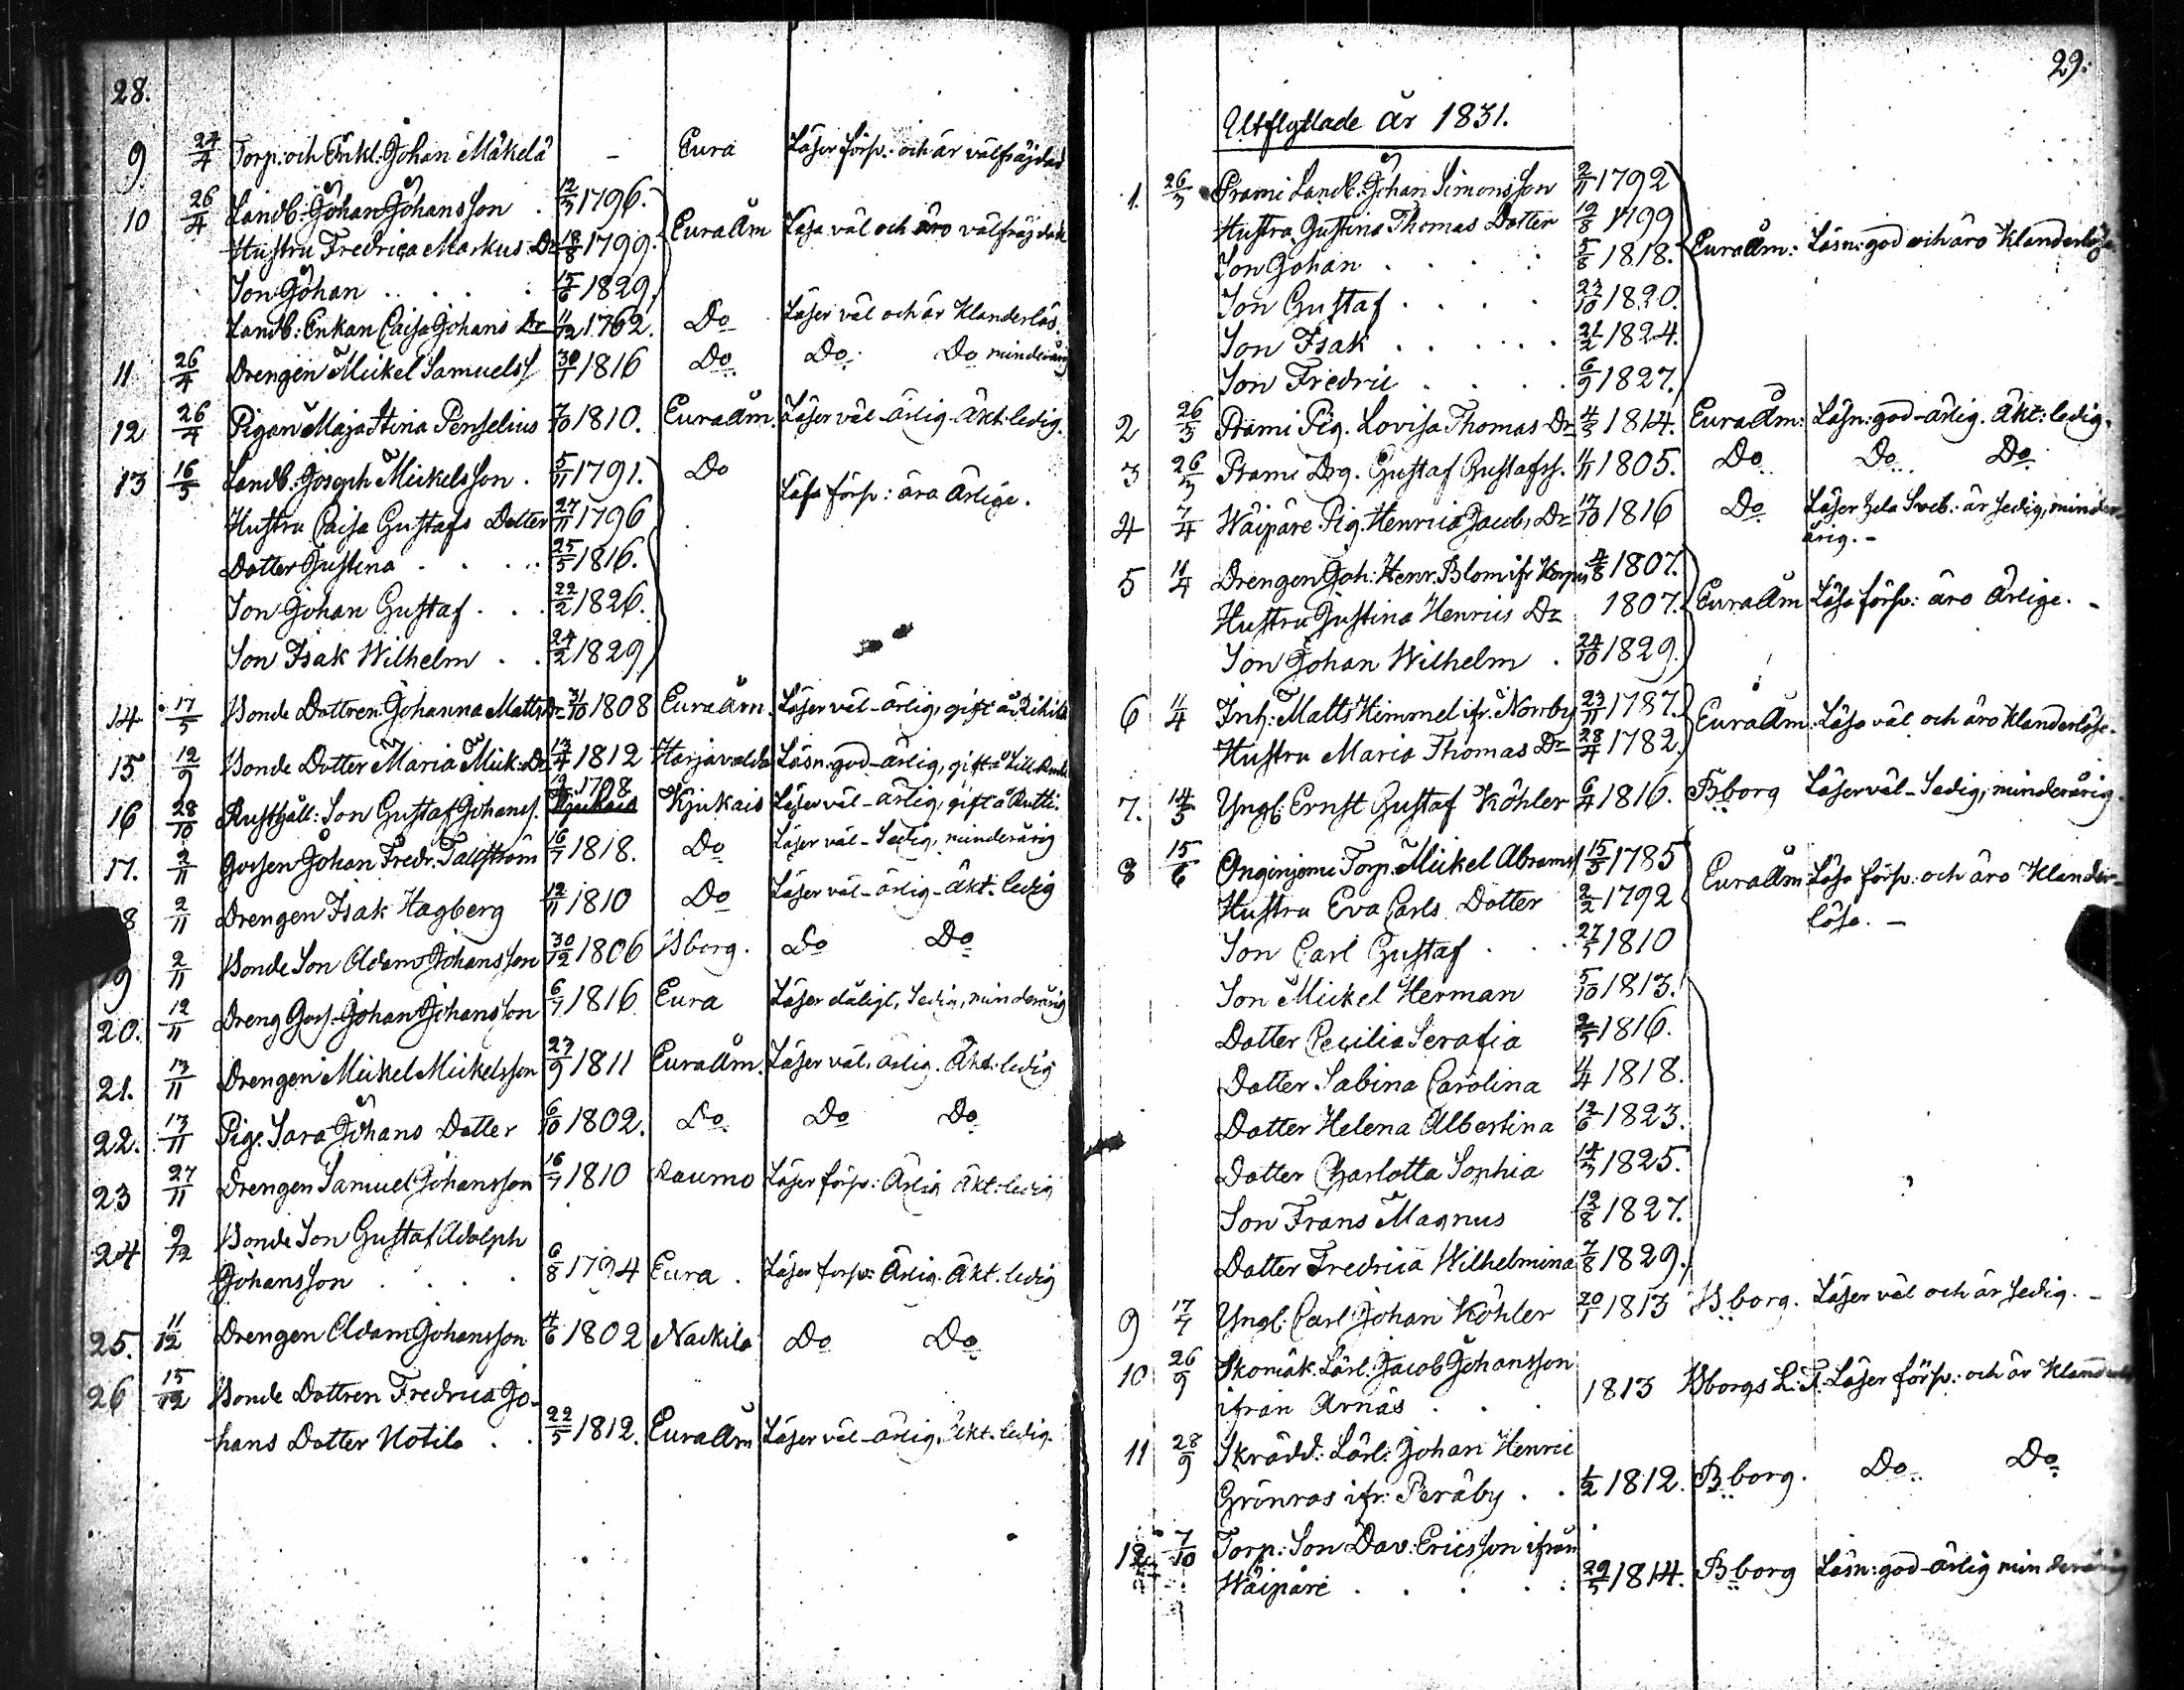 28.
9 24/4 Torp: och Enkl. Johan Mäkelä - Eura Läser försv. och är välfräjdad
10 26/4 Landb. Johan Johansson . 12/3 1796. EuraÅm Läsa väl och äro välfräjdade
Hustru Fredrica Markus Dr 18/8 1799.
Son Johan . . . . 15/6 1829.
Landb: Enkan Caisa Johans Dr 11/12 1762. Do Läser väl och är Klanderlös.
11 26/4 Drengen Mickel Samuelss 30/1 1816 Do Do Do minderårig
12 26/4 Pigan Maja Stina Penselius 7/10 1810. EuraÅm. Läser väl - ärlig - Äkt. ledig.
13 16/5 Landb. Joseph Mickelsson . 5/11 1791. Do Läsa försv: äro Ärlige.
Hustru Caisa Gustafs Dotter 27/11 1796
Dotter Gustina . . . . 25/5 1816.
Son Johan Gustaf . . . 22/2 1826.
Son Isak Wilhelm . . 24/2 1829
14 17/5 Bonde Dottren Johanna Matts Dr 31/10 1808 EuraÅm. Läser väl - ärlig, gift å
15 12/9 Bonde Dotter Maria Mick: Dr 13/4 1812 Harjavalda Läsn. god - ärlig, gift å
16 28/10 Rusthåll: Son Gustaf Johanss. 1798 Kjukais Läser väl - ärlig, gift å Rutti.
17. 2/11 Gossen Johan Fredr. Tallström 16/7 1818. Do Läser väl - Sedig, minderårig
8 2/11 Drengen Isak Hagberg 12/11 1810 Do Läser väl - ärlig - Äkt. ledig
9 2/11 Bonde Son Adam Johansson 30/12 1806 Bborg. Do Do
20. 12/11 Dreng Goss. Johan Johansson 6/7 1816 Eura Läser dåligt, Sedig, minderårig
21. 13/11 Drengen Mickel Mickelsson 23/9 1811 EuraÅm. Läser väl, ärlig. Äkt. ledig
22. 13/11 Pig. Sara Johans Dotter 6/10 1802. Do Do Do
23 27/11 Drengen Samuel Johansson 16/7 1810 Raumo Läser försv: Ärlig Äkt: ledig
24 9/12 Bonde Son Gustaf Adolph
Johansson . . . . 6/8 1794 Eura . Läser forsv: Ärlig. Äkt. ledig
25. 11/12 Drengen Adam Johansson 4/6 1802 Nackila Do Do
26 15/12 Bonde Dottren Fredrica Jo-
hans Dotter Hotila . . 22/5 1812. EuraÅm Läser väl - ärlig. Äkt. ledig.
29.
Utflyttade år 1831.
1. 26/3 Prami Landb. Johan Simonsson 2/11 1792 EuraÅm: Läsn: god och äro Klanderlöse
Hustru Gustina Thomas Dotter 19/8 1799
Son Johan . . . . 5/8 1818.
Son Gustaf . . . . 23/10 1820.
Son Isak . . . . . 21/2 1824.
Son Fredric . . . . 6/9 1827.
2 26/3 Prami Pig. Lovisa Thomas Dr 4/3 1814. EuraÅm: Läsn: god - ärlig. Äkt: ledig.
3 26/3 Prami Drg. Gustaf Gustafss. 4/11 1805. Do Do Do
4 7/4 Wäipäre Pig. Henrica Jacobs Dr 17/10 1816 Do Läser hela Sveb. är Sedig, minder-
årig. -
5 11/4 Drengen Joh: Henr. Blom ifr 4/8 1807. EuraÅm Läsa försv: äro Ärlige. -
Hustru Gustina Henrics Dr 1807.
Son Johan Wilhelm . 24/10 1829.
6 11/4 Inh: Matts Himmel ifr. Norrby 23/11 1787. EuraÅm. Läsa väl och äro Klanderlöse.
Hustru Maria Thomas Dr 28/4 1782.
7. 14/5 Yngl. Ernst Gustaf Köhler 6/4 1816. Bborg Läser väl - Sedig, minderårig.
8 15/6 Onginjemi Torp. Mickel Abramss 15/5 1785 EuraÅm Läsa försv: och äro Klander-
Hustru Eva Carls Dotter 2/2 1792 löse. -
Son Carl Gustaf . . . 27/1 1810
Son Mickel Herman 5/10 1813.
Dotter Cecilia Serafia 2/5 1816.
Dotter Sabina Carolina 4/4 1818.
Dotter Helena Albertina 12/6 1823.
Dotter Charlotta Sophia 14/3 1825.
Son Frans Magnus 12/8 1827.
Dotter Fredrica Wilhelmina 7/8 1829.
9 17/7 Yngl. Carl Johan Köhler 20/1 1813 Bborg. Läser väl och är Sedig. -
10 26/9 Skomak. Lärl. Jacob Johansson
ifrån Arnäs . . . 1813 Bborgs L. F. Läser försv: och är
11 28/9 Skrädd: Lärl: Johan Henric
Grönroos ifr: Peräby . . 1/2 1812. Bborg. Do Do
12 7/10 Torp: Son Dav: Ericsson ifrån
Wäipäre . . . . . 29/5 1814. Bborg Läsn: god - ärlig minderårig